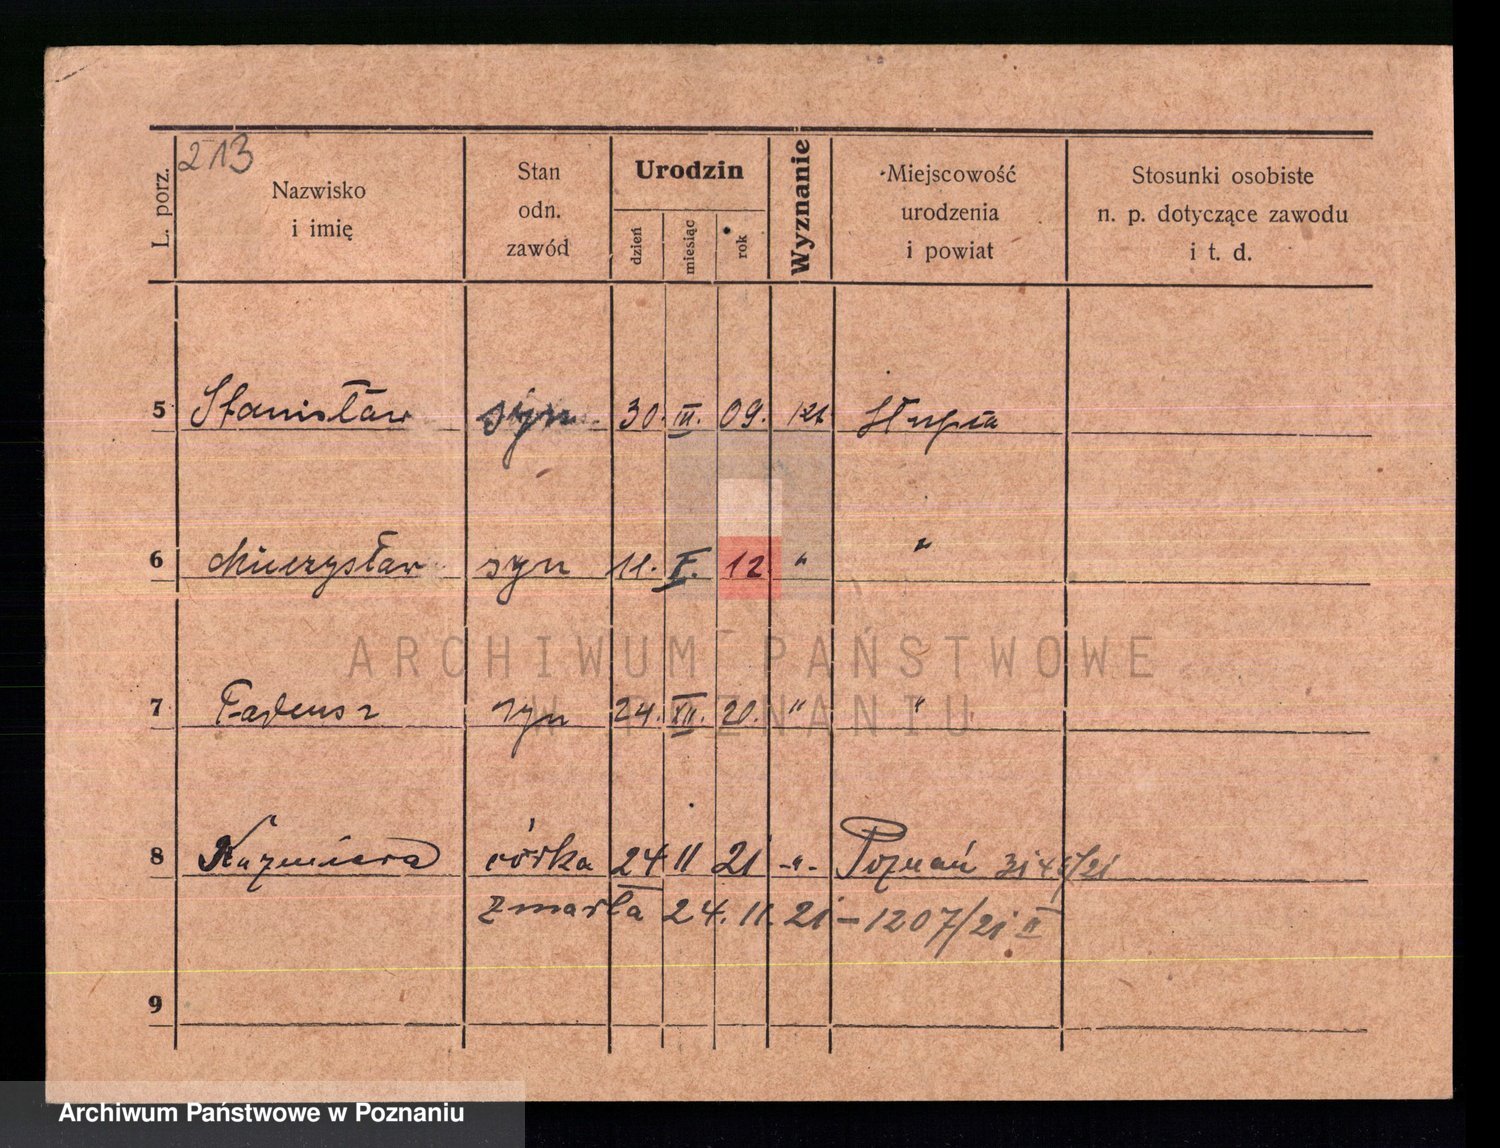 213
L. porz.
Nazwisko
i imię
Stan
odn.
zawód
Urodzin
dzień
miesiąc
rok
Wyznanie
Miejscowość
urodzenia
i powiat
Stosunki osobiste
n. p. dotyczące zawodu
i t. d.
5 Stanisław syn 30. III. 09. kat Słupia
6 Mieczysław syn 11. V. 12 " "
ARCHIWUM PAŃSTWOWE
7 Tadeusz syn 24. XII. 20. " "
W POZNANIU
8 Kazmiera córka 24 11 21 -"- Poznań 3148/21
zmarła 24. 11. 21 – 1207/21 II
9
Archiwum Państwowe w Poznaniu